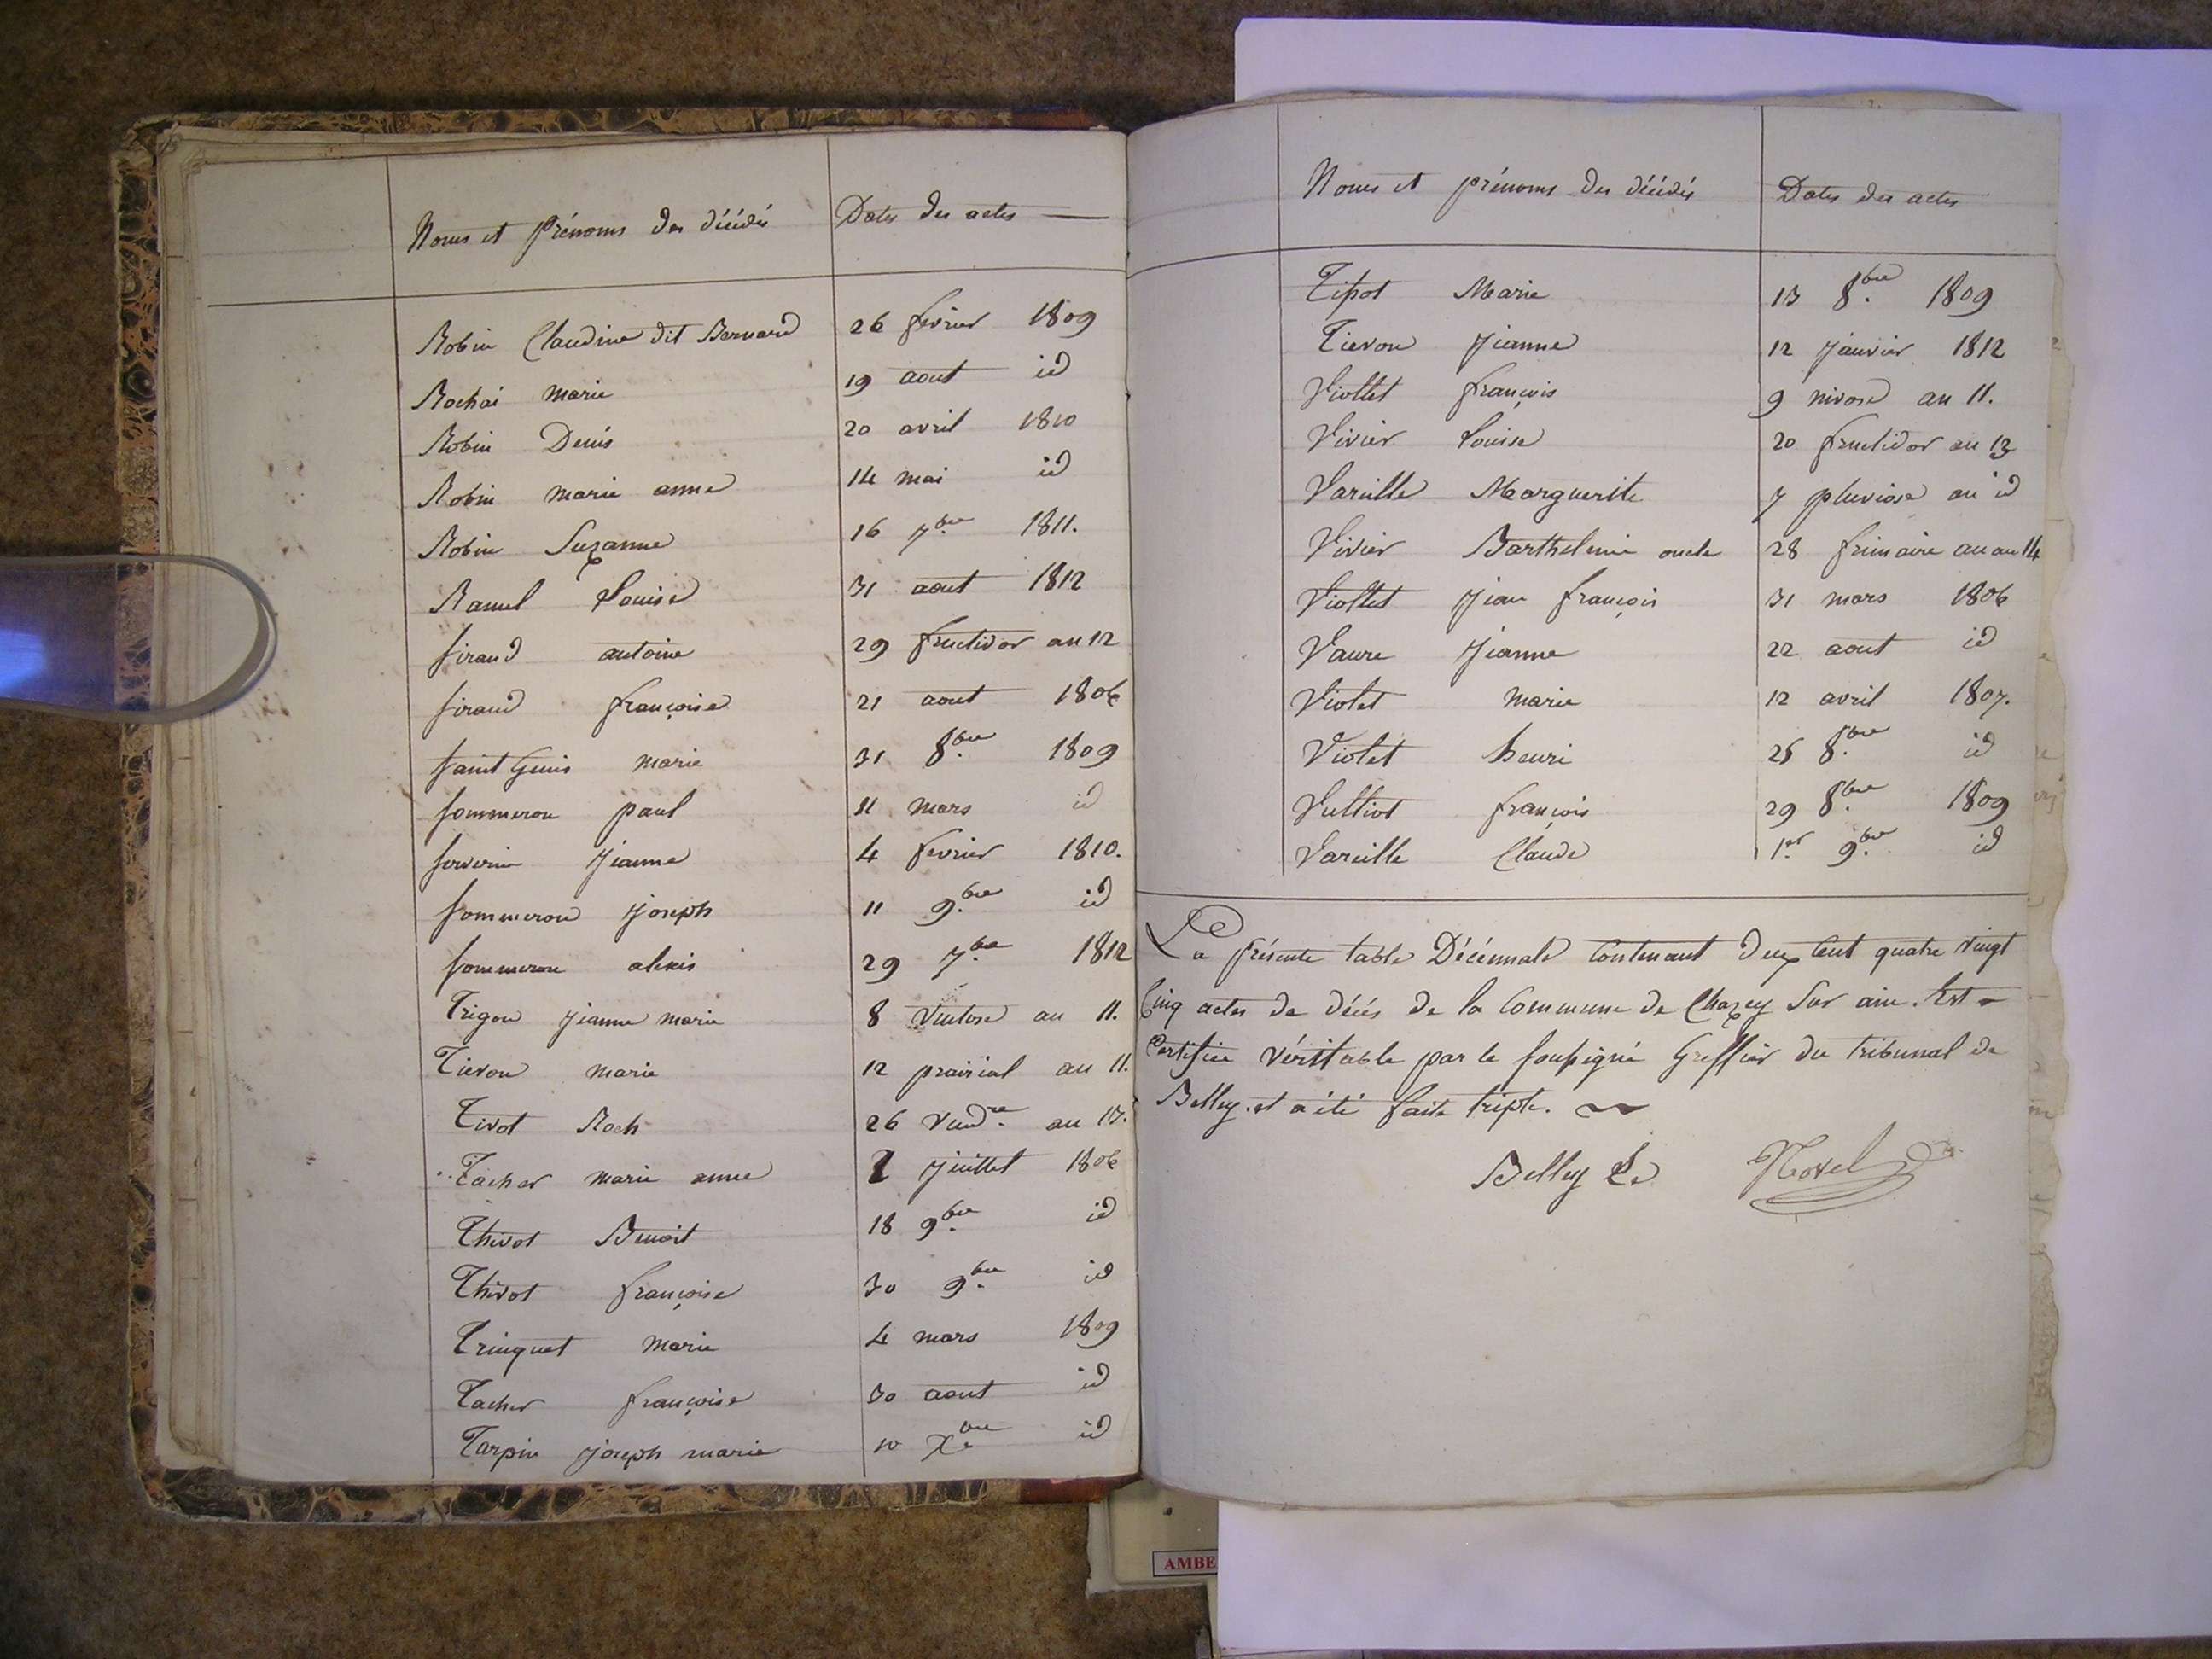 Noms et prénoms des décédés Dates des actes
Robin Claudine dit Bernard 26 fevrier 1809
Rochai marie 19 aout id
Robin Denis 20 avril 1810
Robin marie anne 14 mai id
Robin Suzanne 16 7bre 1811.
Ramel Louise 31 aout 1812
Siraud antoine 29 fructidor an 12
Siraud françoise 21 aout 1806
Saint Genis marie 31 8bre 1809
Sommeron paul 11 mars id
Jeanne 4 fevrier 1810.
Sommeron joseph 11 9bre id
Sommeron alexis 29 7bre 1812
Trigon jeanne marie 8 Ventose an 11.
Tievon marie 12 prairial an 11.
Tivot Roch 26 Vendre an 13.
Tacher marie anne 2 juillet 1806
Thivot Benoit 18 9bre id
Thivot françoise 30 9bre id
Trinquet Marie 4 mars 1809
Tacher françoise 30 aout id
Tarpin joseph marie 10 Xbre id
Noms et prénoms des décédés Dates des actes
Tipot Marie 13 8bre 1809
Tievon Jeanne 12 janvier 1812
Viollet françois 9 nivose an 11.
Vivier Louise 20 fructidor an 13
Vareille Marguerite 7 pluviose an id
Vivier Barthelemie oncle 28 frimaire an an 14
Viollet jean françois 31 mars 1806
Vaure Jeanne 22 aout id
Violet Marie 12 avril 1807.
Violet henri 25 8bre id
Vulliot françois 29 8bre 1809
Vareille Claude 1er 9bre id
La présente table Décennale Contenant deux Cent quatre Vingt
Cinq actes de décés de la Commune de Chazey Sur ain. Est
Certifiée Véritable par le Soussigné Greffier du tribunal de
Belley. et a été faite triple.
Belley Le Novel
AMBE